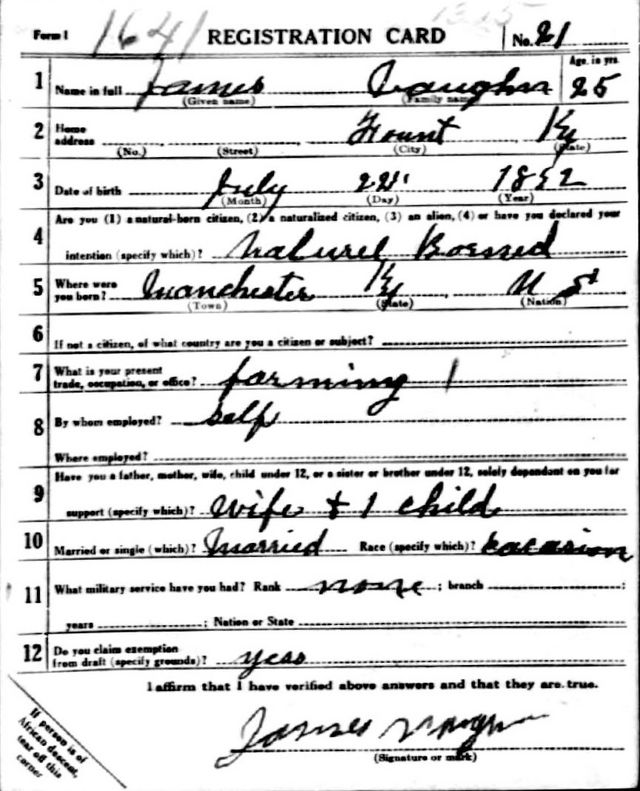 Form 1 1641 REGISTRATION CARD No. 21
Age, in yrs.
1 Name in full James Vaughn 25
(Given name) (Family name)
2 Home address Fount Ky
(No.) (Street) (City) (State)
3 Date of birth July 22 1892
(Month) (Day) (Year)
4 Are you (1) a natural-born citizen, (2) a naturalized citizen, (3) an alien, (4) or have you declared your
intention (specify which)? Naturel Borned
5 Where were you born? Manchester Ky U St
(Town) (State) (Nation)
6 If not a citizen, of what country are you a citizen or subject?
7 What is your present trade, occupation, or office? farming 1
8 By whom employed? Self
Where employed?
9 Have you a father, mother, wife, child under 12, or a sister or brother under 12, solely dependent on you for
support (specify which)? Wife + 1 child
10 Married or single (which)? Married Race (specify which)? Cacasion
11 What military service have you had? Rank none ; branch ;
years ; Nation or State
12 Do you claim exemption from draft (specify grounds)? yeas
I affirm that I have verified above answers and that they are true.
James
(Signature or mark)
If person is of
African descent,
tear off this
corner